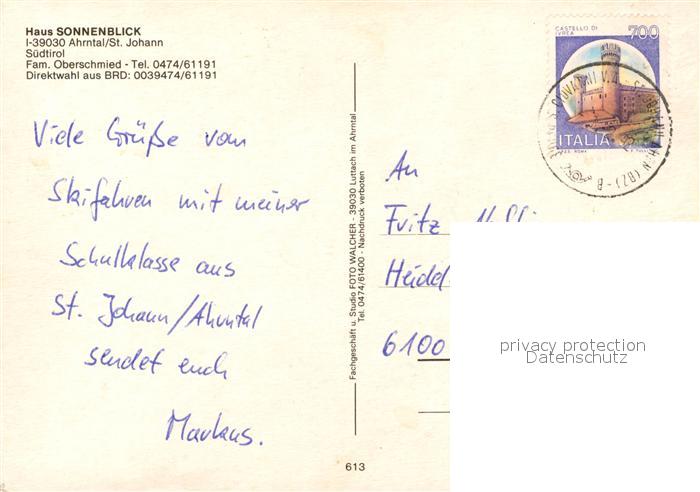 Haus SONNENBLICK
I-39030 Ahrntal/St. Johann
Südtirol
Fam. Oberschmied - Tel. 0474/61191
Direktwahl aus BRD: 0039474/61191
Viele Grüße vom
Skifahren mit meiner
Schulklasse aus
St. Johann/Ahrntal
sendet euch
Markus.
Fachgeschäft u. Studio FOTO WALCHER - 39030 Luttach im Ahrntal
Tel. 0474/61400 - Nachdruck verboten
613
CASTELLO DI
IVREA
700
ITALIA
An
Fritz
6100
privacy protection
Datenschutz